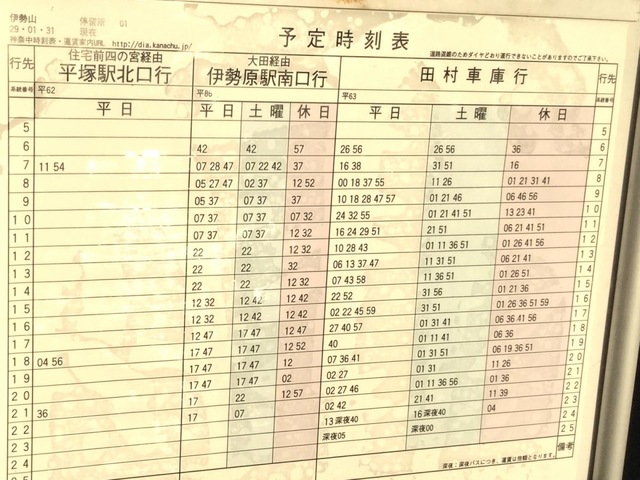 伊勢山 停留所 01
29・01・31 現在
神奈中時刻表・運賃案内URL http://dia.kanachu.jp/
予定時刻表
道路混雑のためダイヤどおり運行できないことがありますのでご了承下さい。
行先 住宅前四の宮経由 平塚駅北口行 大田経由 伊勢原駅南口行 田村車庫行 行先
系統番号 平62 平86 平63 系統番号
平日 平日 土曜 休日 平日 土曜 休日
5 5
6 42 42 57 26 56 26 56 36 6
7 11 54 07 28 47 07 22 42 37 16 38 31 51 16 7
8 05 27 47 02 37 12 52 00 18 37 55 11 26 01 21 31 41 8
9 05 37 07 37 37 10 18 28 47 57 01 21 46 06 46 56 9
10 07 37 07 37 07 32 24 32 55 01 21 41 51 13 23 41 10
11 07 37 07 37 12 32 16 24 29 51 21 51 06 21 41 51 11
12 22 22 12 32 10 28 43 01 11 36 51 01 26 41 56 12
13 22 22 32 06 13 37 47 11 31 51 06 21 41 13
14 22 22 12 32 07 43 58 11 36 51 01 26 51 14
15 12 32 12 42 12 32 22 52 31 56 01 21 36 15
16 12 32 12 42 12 32 02 22 45 59 31 51 01 26 36 51 59 16
17 12 47 17 47 17 47 27 40 57 01 31 41 06 36 41 56 17
18 04 56 17 47 17 47 12 52 40 01 11 41 06 36 18
19 17 47 17 47 12 07 36 41 01 31 51 06 19 36 51 19
20 17 47 17 47 02 02 27 01 31 11 26 20
21 36 17 22 12 57 02 27 46 01 11 36 56 01 36 21
22 17 07 02 42 21 41 11 39 22
23 13深夜40 16深夜40 04 23
24 深夜05 深夜00 24
25 25
備考
深夜：深夜バスにつき、運賃は倍額となります。